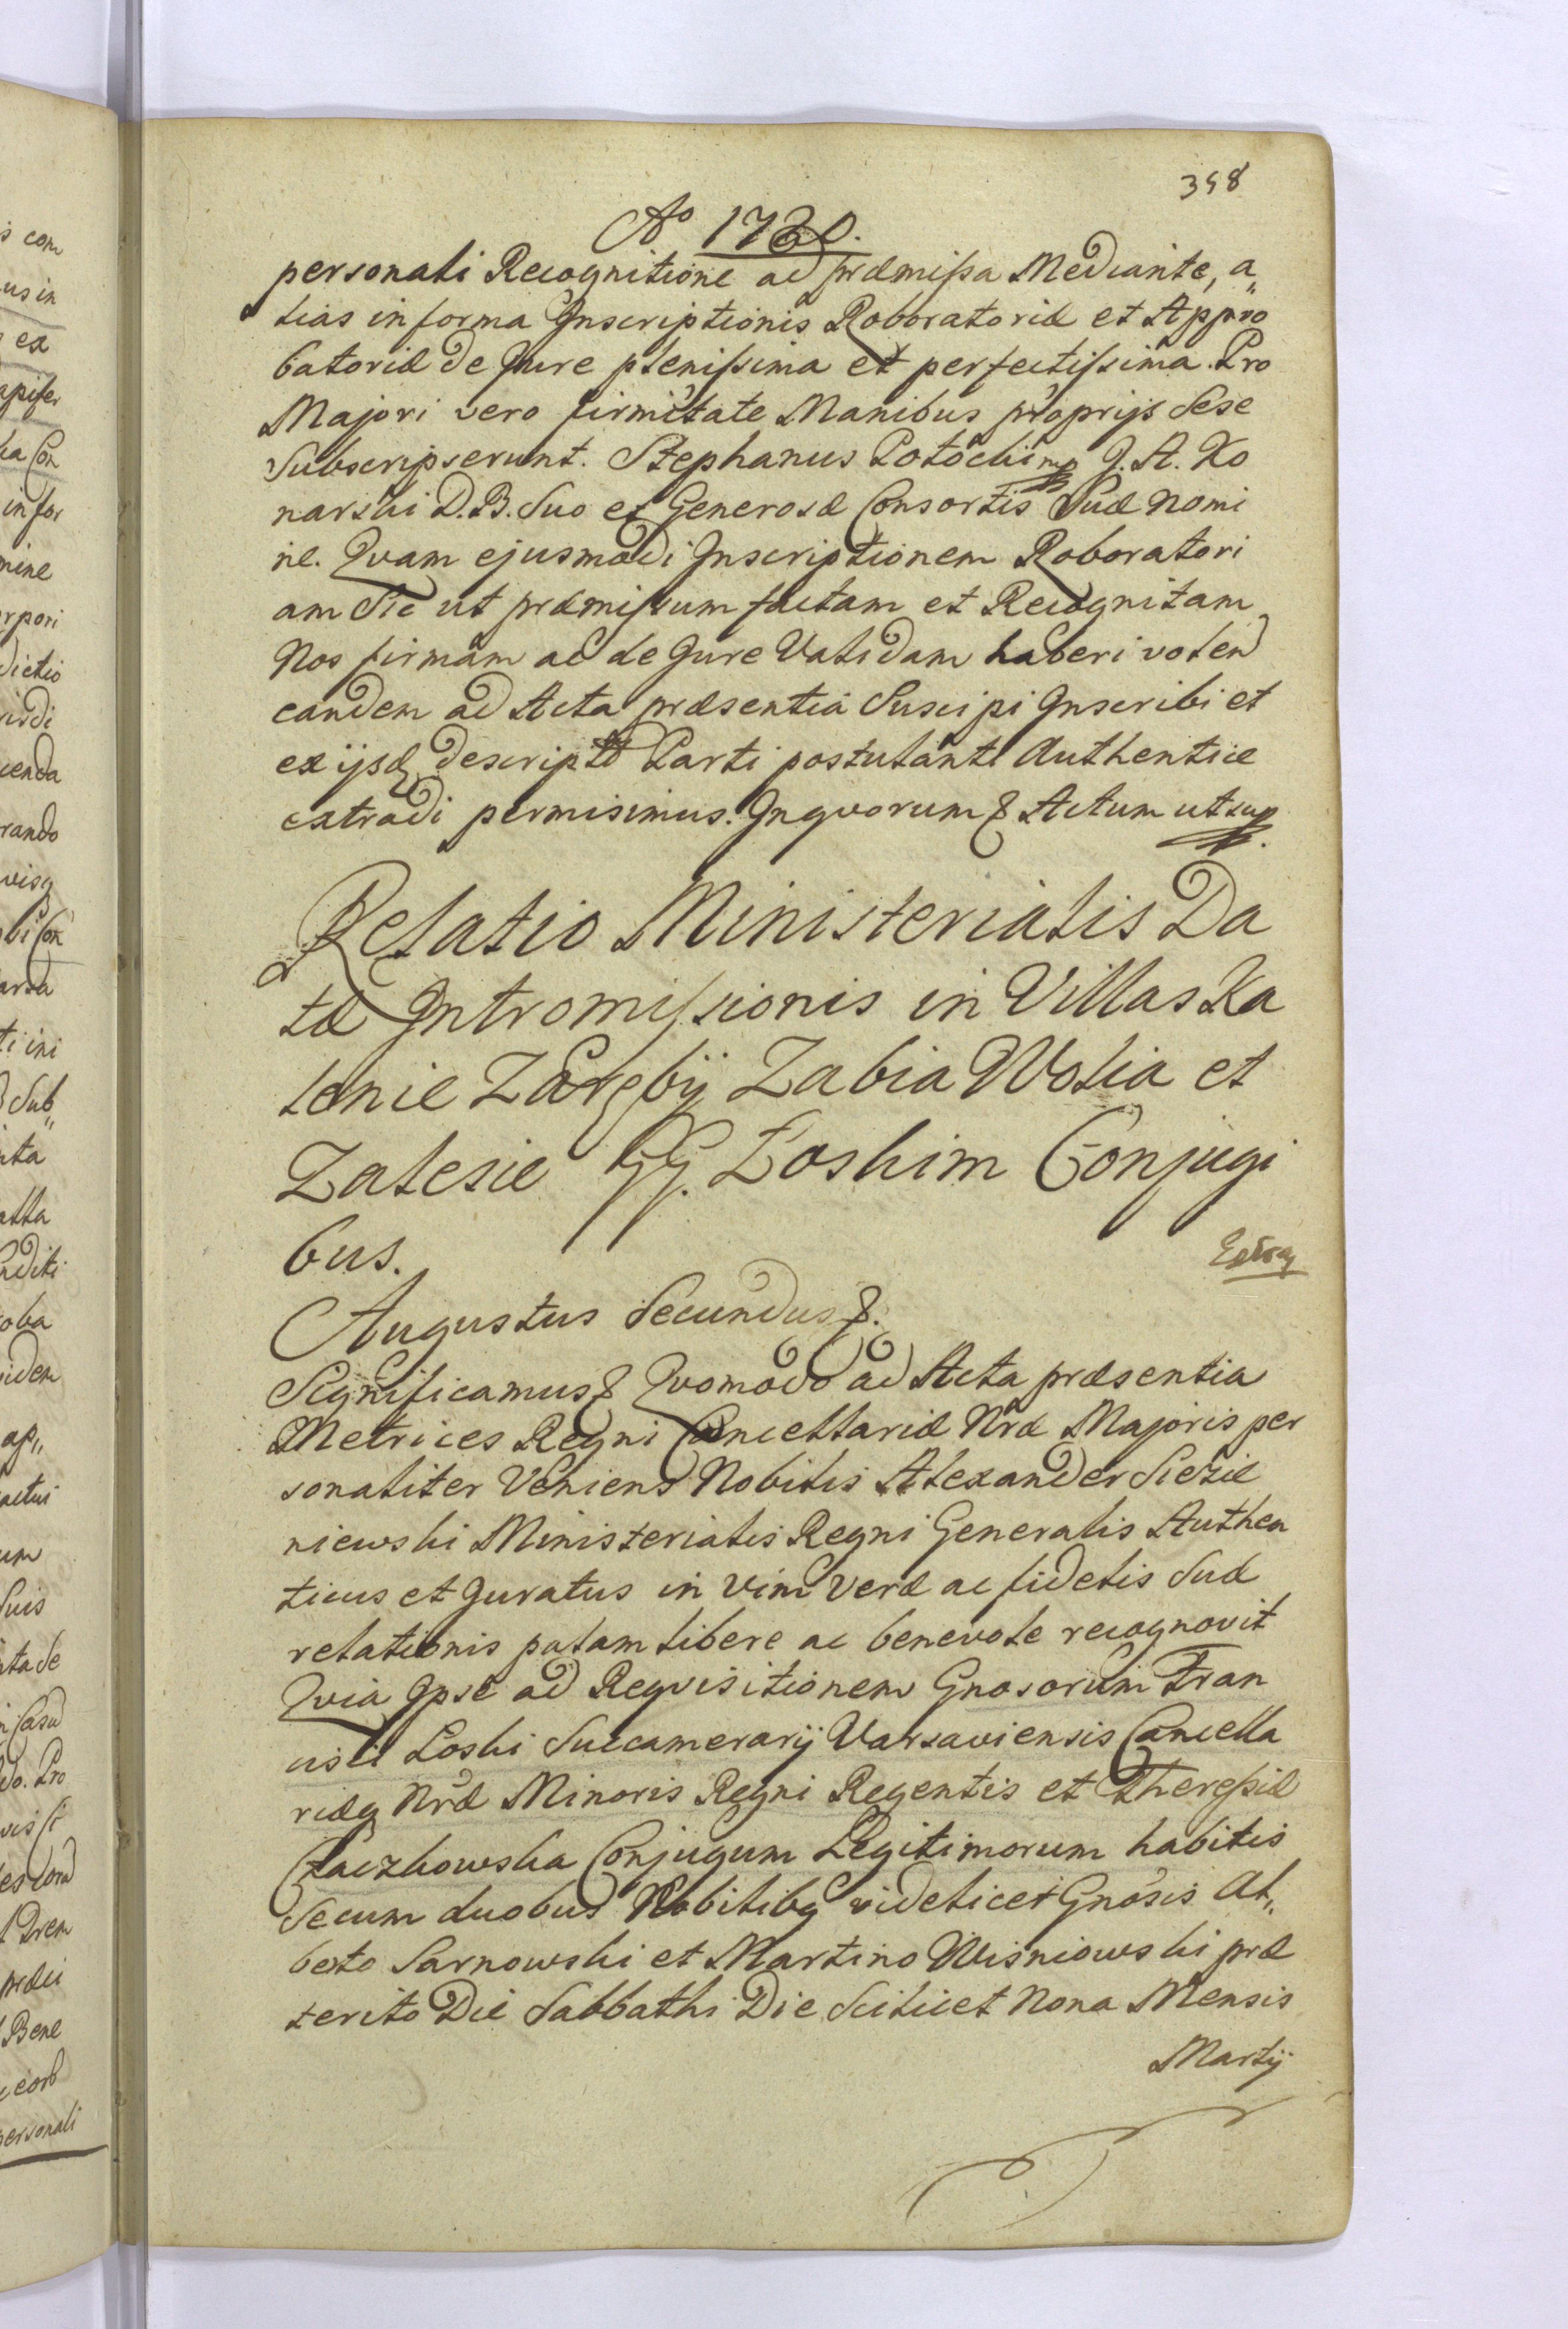 398
Ao 1720.
personali Recognitione ad præmissa Mediante, a„
lias in forma Inscriptionis Roboratoriæ et Appro
batoriæ de Jure plenissima et perfectissima. Pro
Majori vero firmitate Manibus proprijs Sese
Subscripserunt. Stephanus Potocki mp J. A. Ko
narski D. B. Suo et Generosæ Consortis Suæ Nomi
ne. Qvam ejusmodi Inscriptionem Roboratori
am Sic ut præmissum factam et Recognitam
Nos firmam ac de Jure Validam haberi volen
eandem ad Acta præsentia Suscipi Inscribi et
ex ijsdq descriptã Parti postulanti Authentice
extradi permisimus. Inqvorum & Actum ut sup.
Relatio Ministerialis Da
tæ Intromissionis in Villas Ka
lenie Zaręby Zabia Wolia et
Zalesie GG. Łoskim Conjugi
bus.
Extrag
Augustus Secundus &.
Significamus & Qvomodo ad Acta præsentia
Metrices Regni Cancellariæ Nræ Majoris per
sonaliter Veniens Nobilis Alexander Siezie
niewski Ministerialis Regni Generalis Authen
ticus et Juratus in vim veræ ac fidelis Suæ
relationis palam libere ac benevole recognovit
Qvia Ipse ad Reqvisitionem Gnosorum Fran
cisci Łoski Succamerarij Varsaviensis Cancella
riæq Nræ Minoris Regni Regentis et Theressiæ
Czaczkowska Conjugum Legitimorum habitis
Secum duobus Nobilibq videlicet Gnosis Al„
berto Sarnowski et Martino Wisniowski præ
terito Die Sabbathi Die Scilicet Nona Mensis
Martij